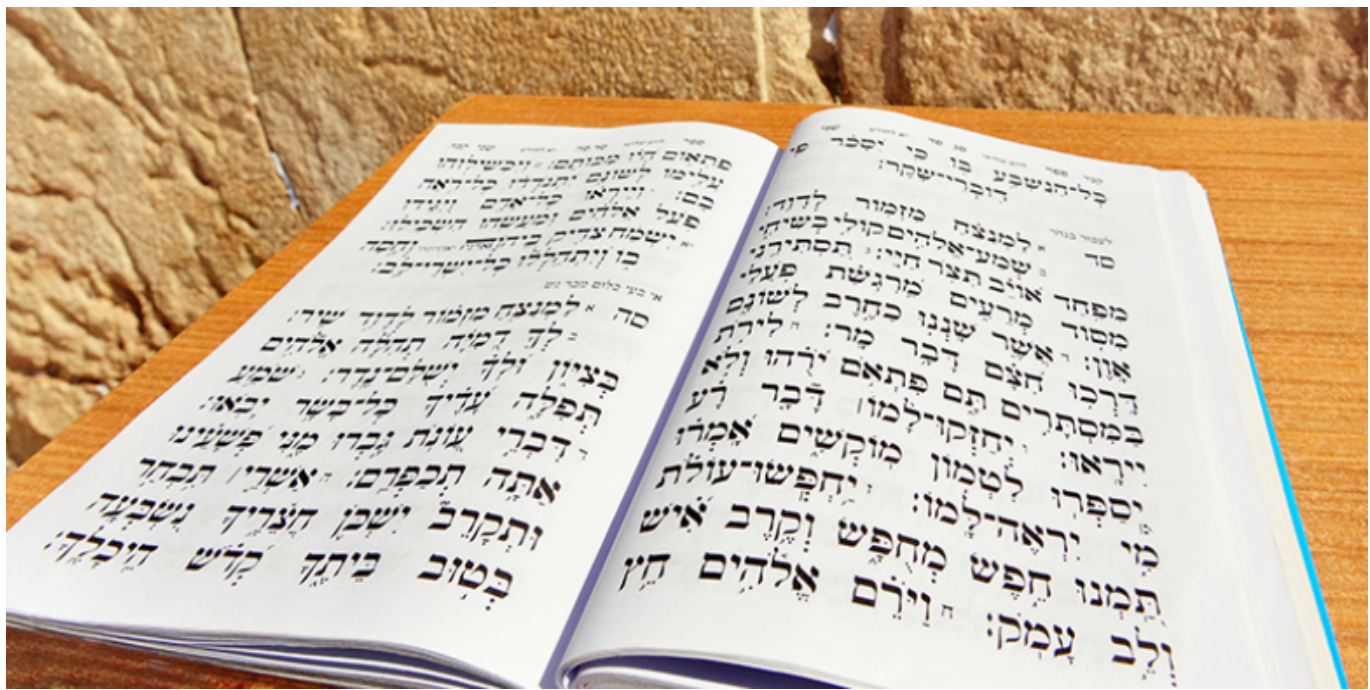 כָּל־הַנִּשְׁבָּע בּוֹ כִּי יִסָּכֵר פִּי
דוֹבְרֵי־שָׁקֶר:
לעבור בנהר
סד א לַמְנַצֵּחַ מִזְמוֹר לְדָוִד:
ב שְׁמַע־אֱלֹהִים קוֹלִי בְשִׂיחִי
מִפַּחַד אוֹיֵב תִּצֹּר חַיָּי: ג תַּסְתִּירֵנִי
מִסּוֹד מְרֵעִים מֵרִגְשַׁת פֹּעֲלֵי
אָוֶן: ד אֲשֶׁר שָׁנְנוּ כַחֶרֶב לְשׁוֹנָם
דָּרְכוּ חִצָּם דָּבָר מָר: ה לִירֹת
בַּמִּסְתָּרִים תָּם פִּתְאֹם יֹרֻהוּ וְלֹא
יִירָאוּ: ו יְחַזְּקוּ־לָמוֹ׀ דָּבָר רָע
יְסַפְּרוּ לִטְמוֹן מוֹקְשִׁים אָמְרוּ
מִי יִרְאֶה־לָּמוֹ: ז יַחְפְּשׂוּ־עוֹלֹת
תַּמְנוּ חֵפֶשׂ מְחֻפָּשׂ וְקֶרֶב אִישׁ
וְלֵב עָמֹק: ח וַיֹּרֵם אֱלֹהִים חֵץ
פִּתְאוֹם הָיוּ מַכּוֹתָם: ט וַיַּכְשִׁילוּהוּ
עָלֵימוֹ לְשׁוֹנָם יִתְנֹדְדוּ כָּל־רֹאֵה
בָם: י וַיִּירְאוּ כָּל־אָדָם וַיַּגִּידוּ
פֹּעַל אֱלֹהִים וּמַעֲשֵׂהוּ הִשְׂכִּילוּ:
יא יִשְׂמַח צַדִּיק בַּיהוָה וְחָסָה
בוֹ וְיִתְהַלְלוּ כָּל־יִשְׁרֵי־לֵב:
אי בעי כלום מבר נש
סה א לַמְנַצֵּחַ מִזְמוֹר לְדָוִד שִׁיר:
ב לְךָ דֻמִיָּה תְהִלָּה אֱלֹהִים
בְּצִיּוֹן וּלְךָ יְשֻׁלַּם־נֶדֶר: ג שֹׁמֵעַ
תְּפִלָּה עָדֶיךָ כָּל־בָּשָׂר יָבֹאוּ:
ד דִּבְרֵי עֲוֺנֹת גָּבְרוּ מֶנִּי פְּשָׁעֵינוּ
אַתָּה תְכַפְּרֵם: ה אַשְׁרֵי׀ תִּבְחַר
וּתְקָרֵב יִשְׁכֹּן חֲצֵרֶיךָ נִשְׂבְּעָה
בְּטוּב בֵּיתֶךָ קְדֹשׁ הֵיכָלֶךָ: